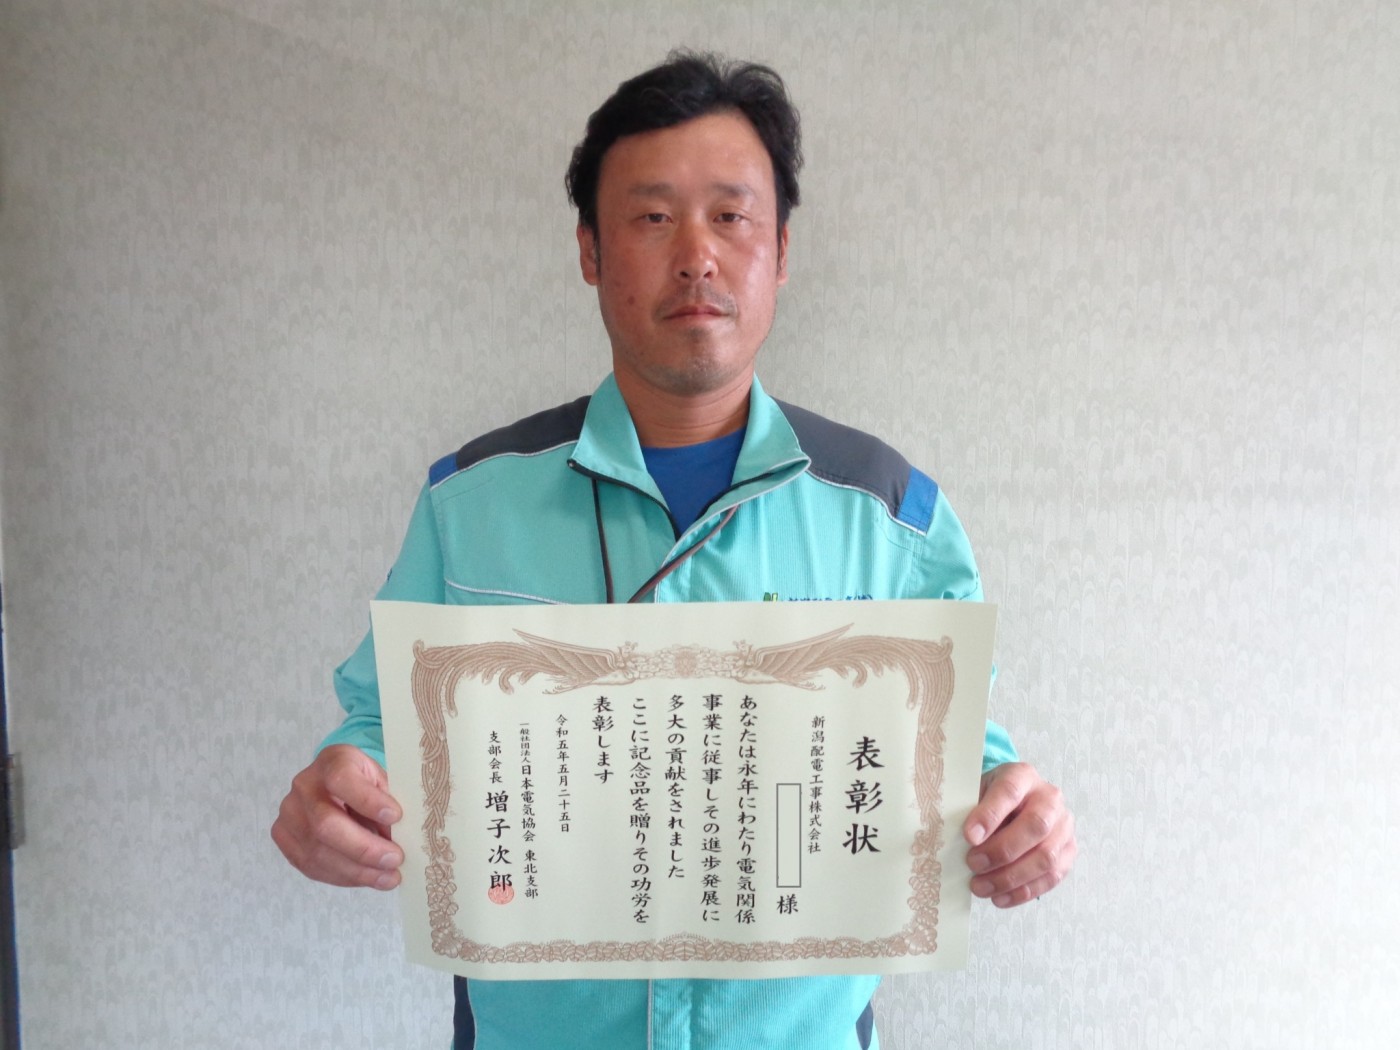 表彰状
新潟配電工事株式会社
様
あなたは永年にわたり電気関係
事業に従事しその進歩発展に
多大の貢献をされました
ここに記念品を贈りその功労を
表彰します
令和五年五月二十五日
一般社団法人日本電気協会 東北支部
支部会長 増子次郎